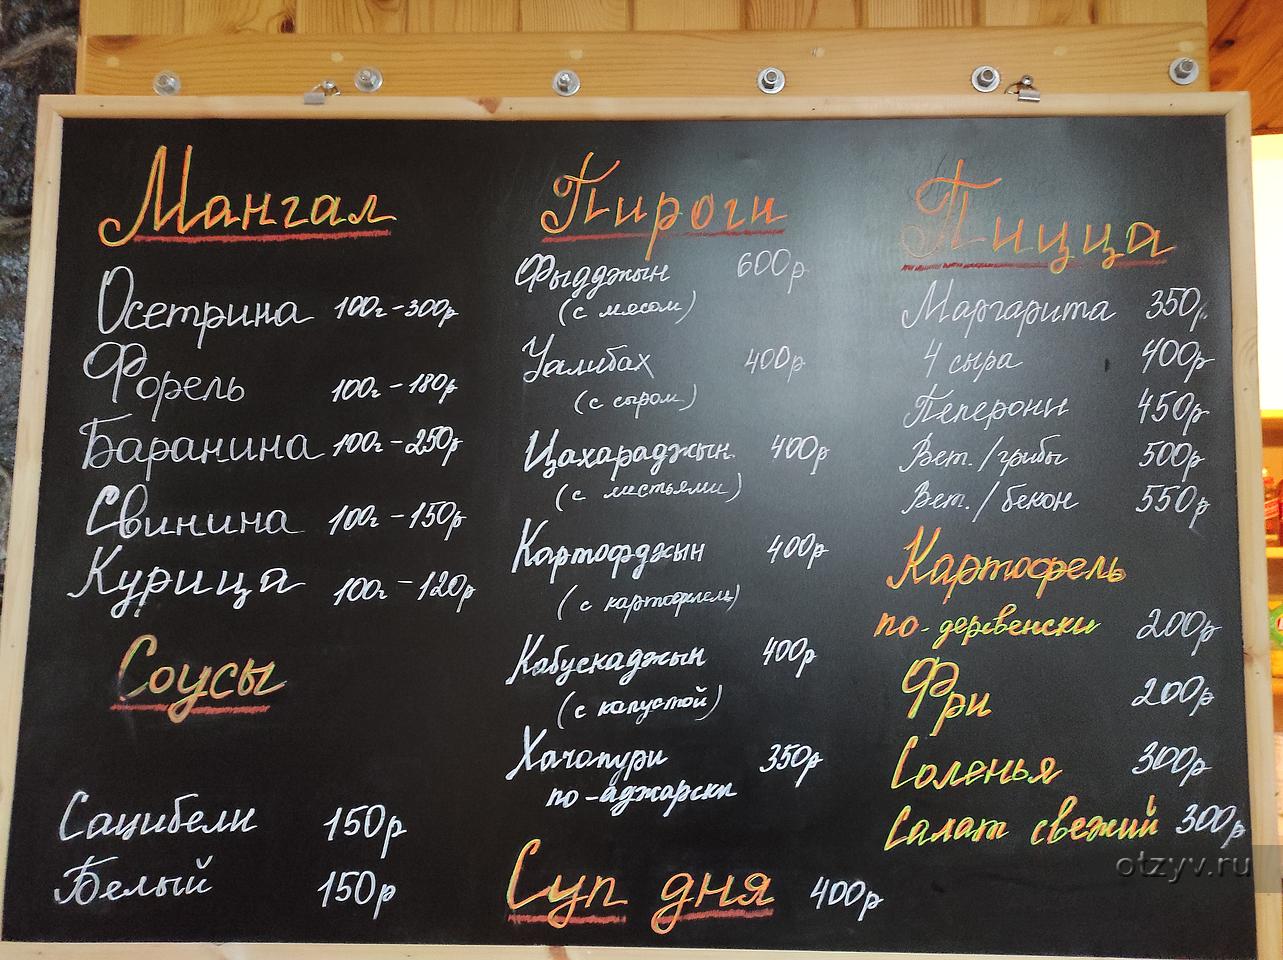 Мангал
Осетрина 100г-300р
Форель 100г-180р
Баранина 100г-250р
Свинина 100г-150р
Курица 100г-120р
Соусы
Сацибели 150р
Белый 150р
Пироги
Фыдджын 600р
(с мясом)
Уалибах 400р
(с сыром)
Цахараджын 400р
(с листьями)
Картофджын 400р
(с картофелем)
Кабускаджын 400р
(с капустой)
Хачапури 350р
по-аджарски
Суп дня 400р
Пицца
Маргарита 350р
4 сыра 400р
Пеперони 450р
Вет./грибы 500р
Вет./бекон 550р
Картофель
по-деревенски 200р
Фри 200р
Соленья 300р
Салат свежий 300р
otzyv.ru